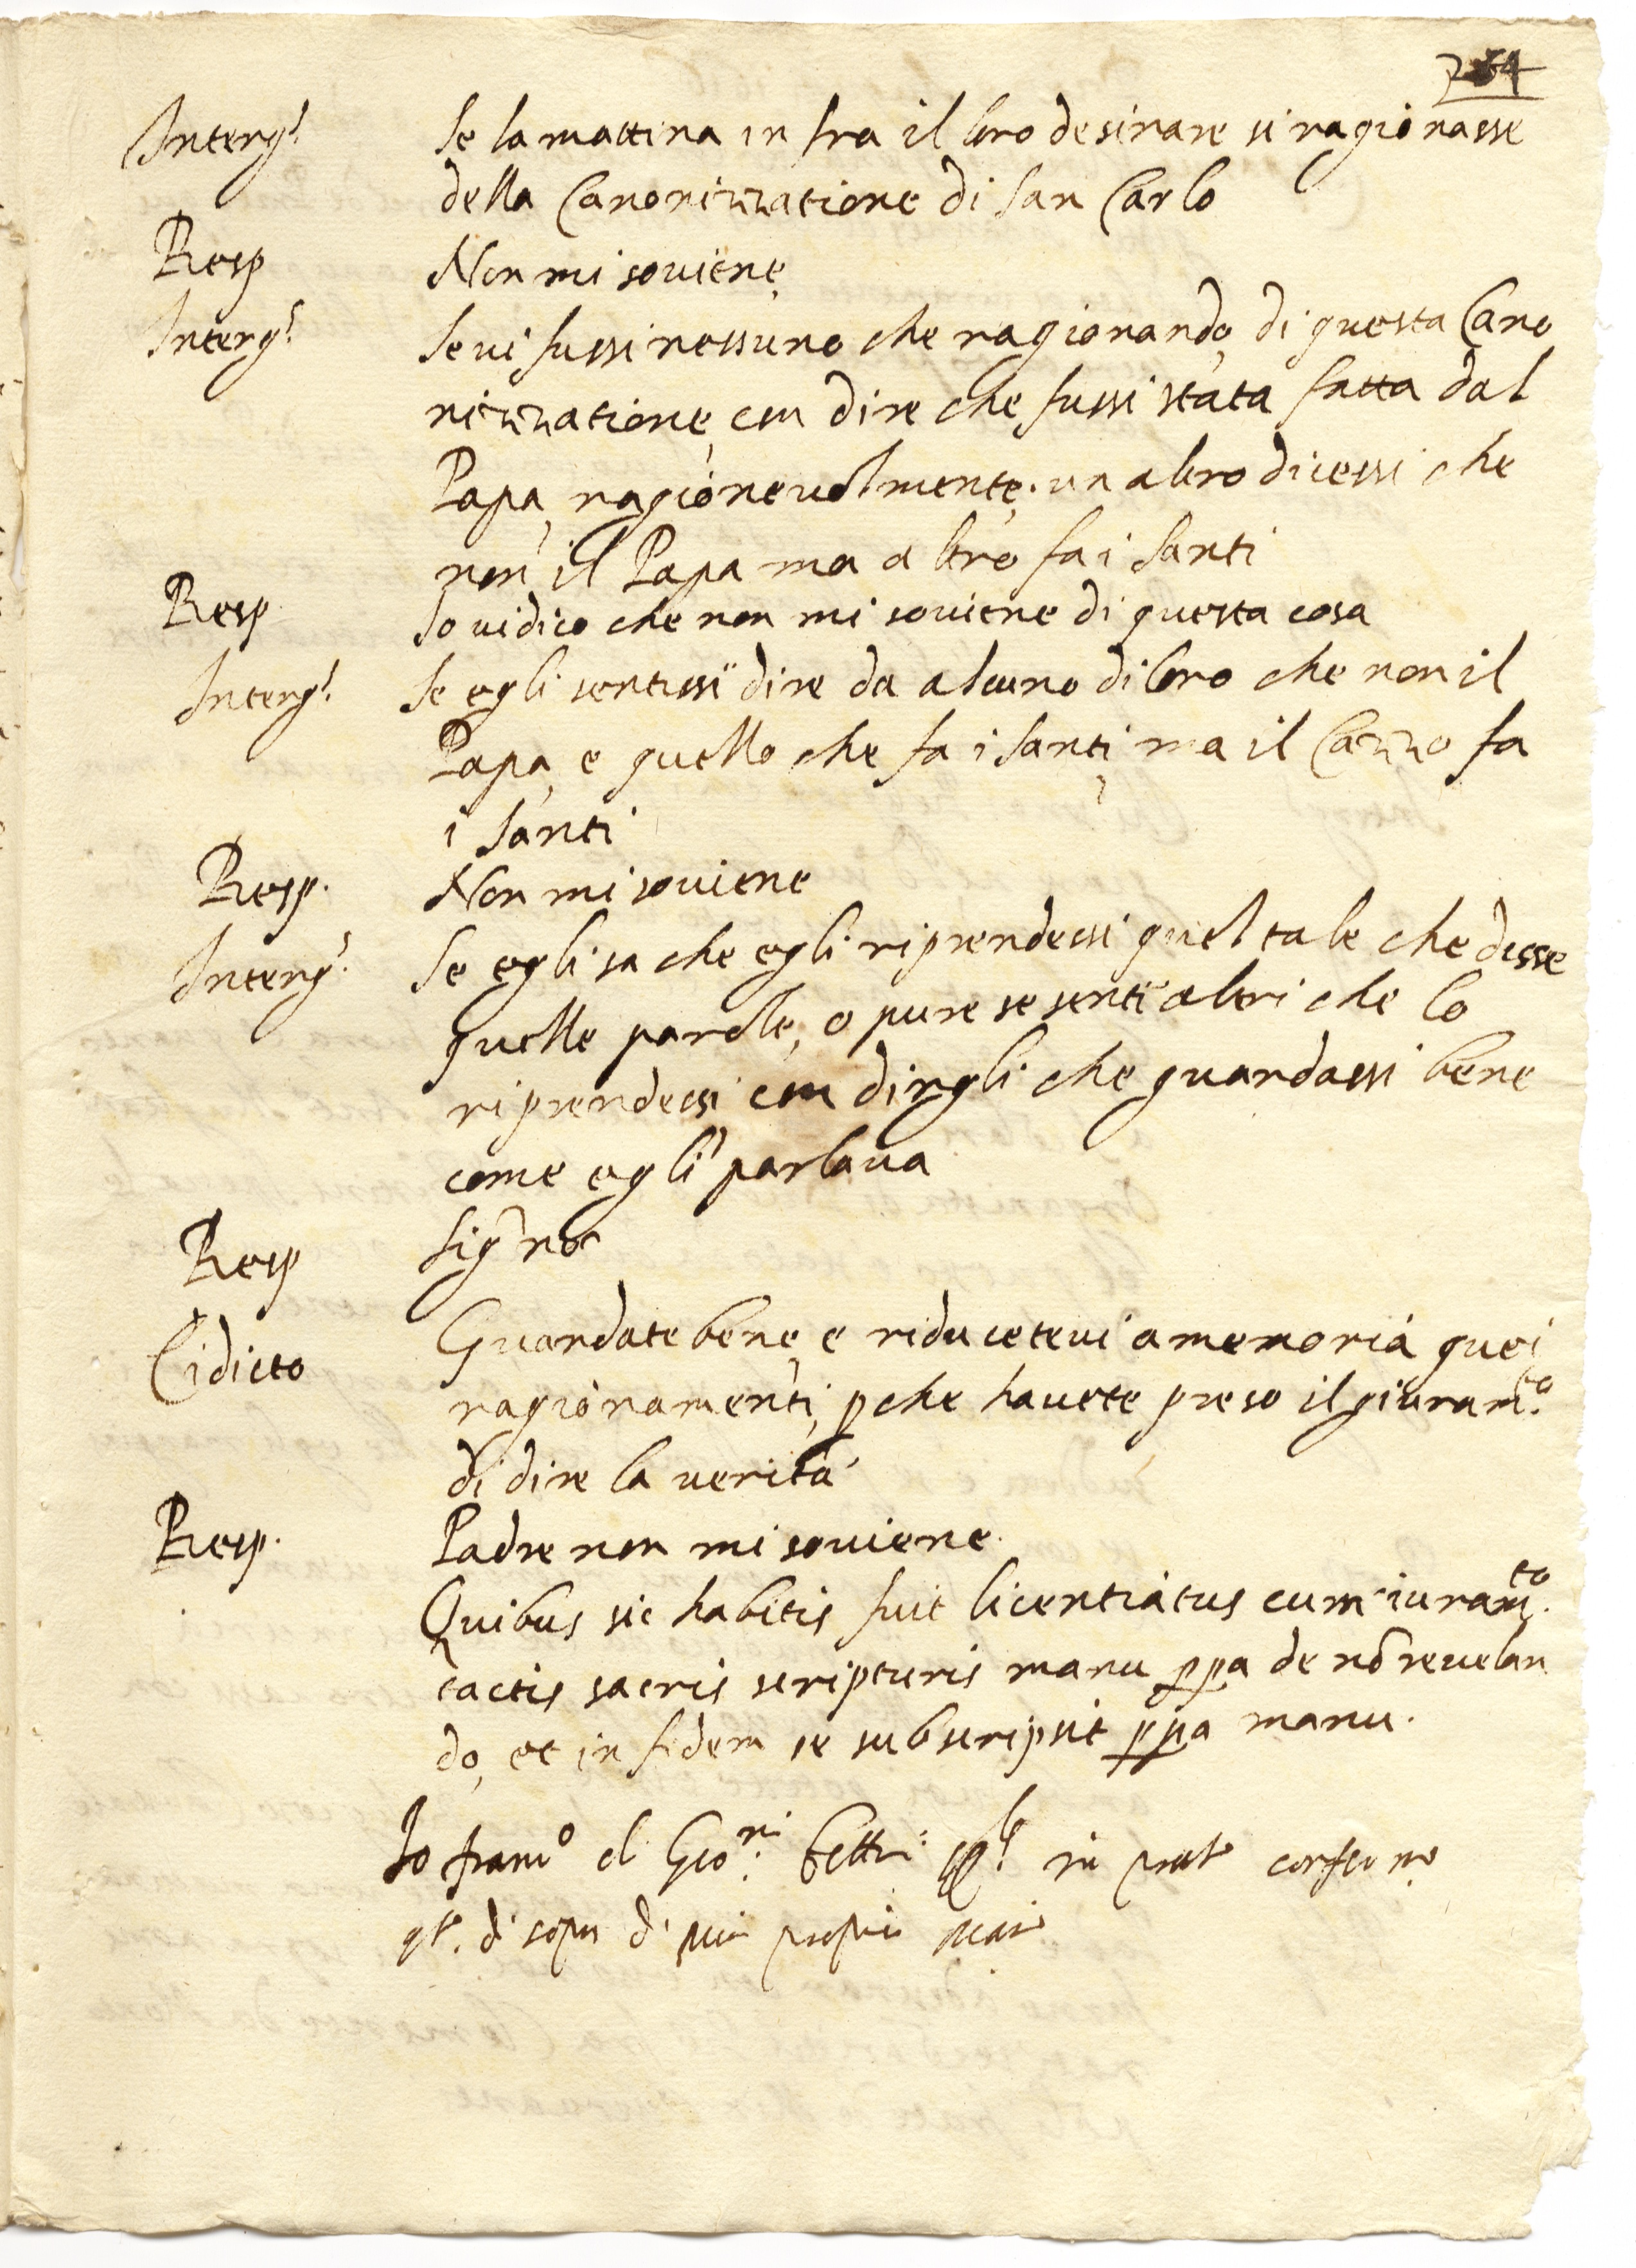 Interg.^t Se la mattina in fra il loro desinare si ragionasse
della Canonizzatione di San Carlo
Resp Non mi soviene
Interg.^t Se vi fussi nessuno che ragionando, di questa Cano
nizzatione, con dire che fussi stata fatta dal
Papa, ragionevolmente, un altro dicessi che
non il Papa ma altro fa i Santi
Resp Io vi dico che non mi soviene di questa cosa
Interg.^t Se egli sentissi dire da alcuno di loro che non il
Papa, e quello che fa i santi, ma il Cazzo fa
i Santi
Resp. Non mi soviene
Interg.^t Se egli sa che egli riprendessi quel tale che disse
quelle parole, o pure se senti altri che lo
riprendessi con dirgli che guardassi bene
come egli parlava
Resp Sig no
Ei dicto Guardate bene, e riducetevi a memoria quei
ragionamenti, pche havete preso il giuram.to
di dire la verità
Resp. Padre non mi soviene.
Quibus sic habitis fuit licentiatus cum iuram.to
tactis sacris scripturis manu ppa de nō revelan
do, et in fidem se subscripsit ppa manu.
Io franc.o di Gio.ni in prato confermo
q.to di sopra di mia propria mano